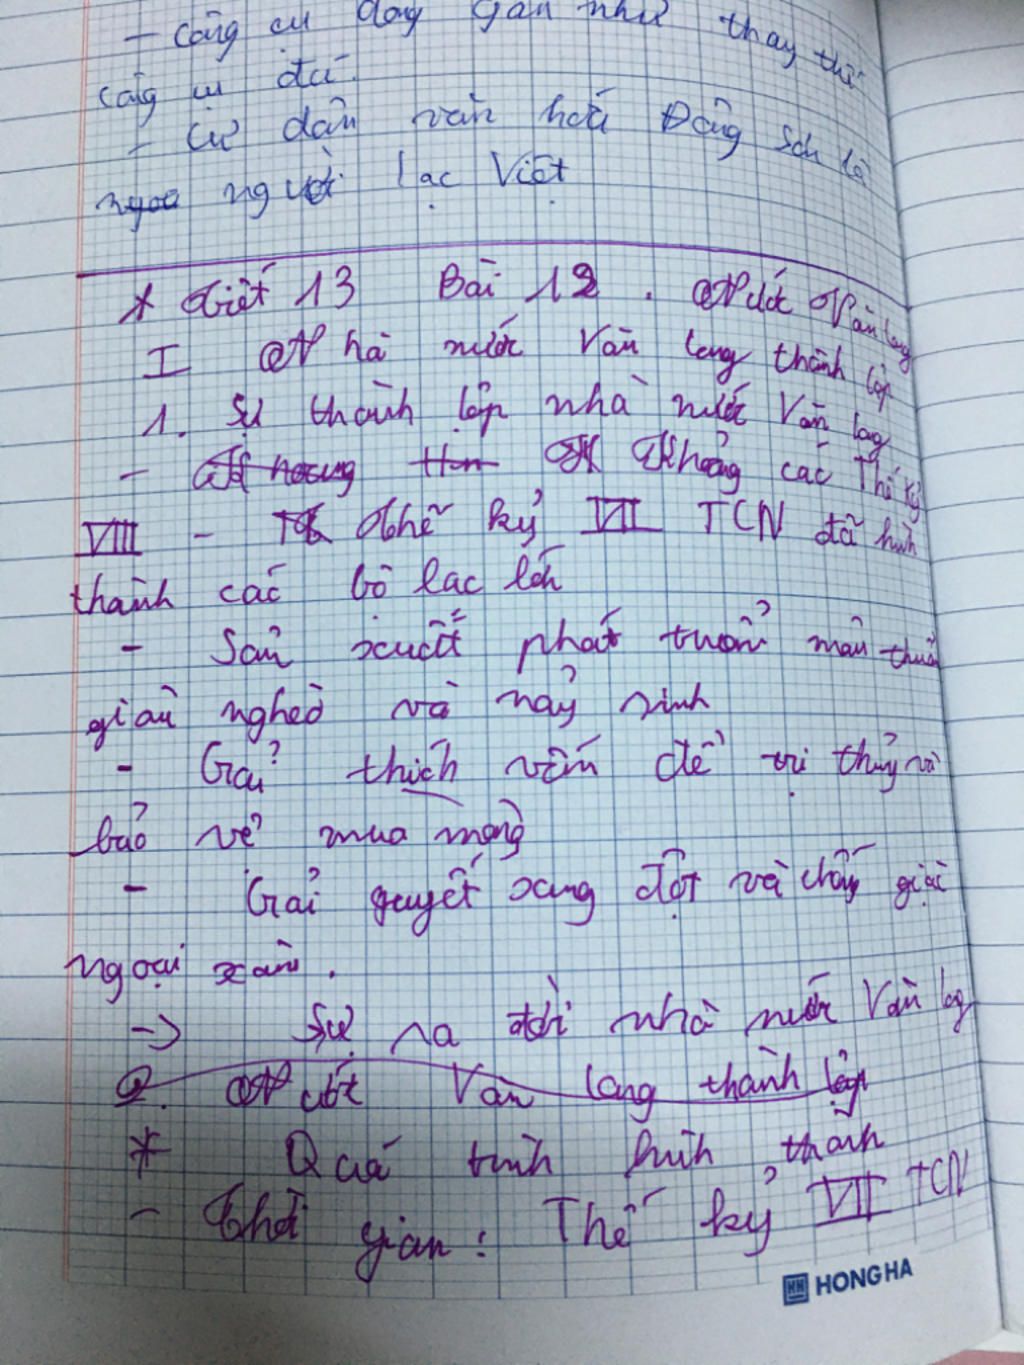 - Công cụ đồng gần như thay thế
công cụ đá.
- Cư dân văn hoá Đông Sơn là
người Lạc Việt
* Tiết 13 Bài 12. Nước Văn Lang
I Nhà nước Văn Lang thành lập
1. Sự thành lập nhà nước Văn Lang
- Khoảng các Thế kỷ
VIII - Thế kỷ VII TCN đã hình
thành các bộ lạc lớn
- Sản xuất phát triển mâu thuẫn
giàu nghèo và nảy sinh
- Giải thích vấn đề trị thủy và
bảo vệ mùa màng
- Giải quyết xung đột và chống giặc
ngoại xâm.
-> Sự ra đời nhà nước Văn Lang
2. Nước Văn Lang thành lập
* Quá trình hình thành
- Thời gian: Thế kỷ VII TCN
HH HONG HA